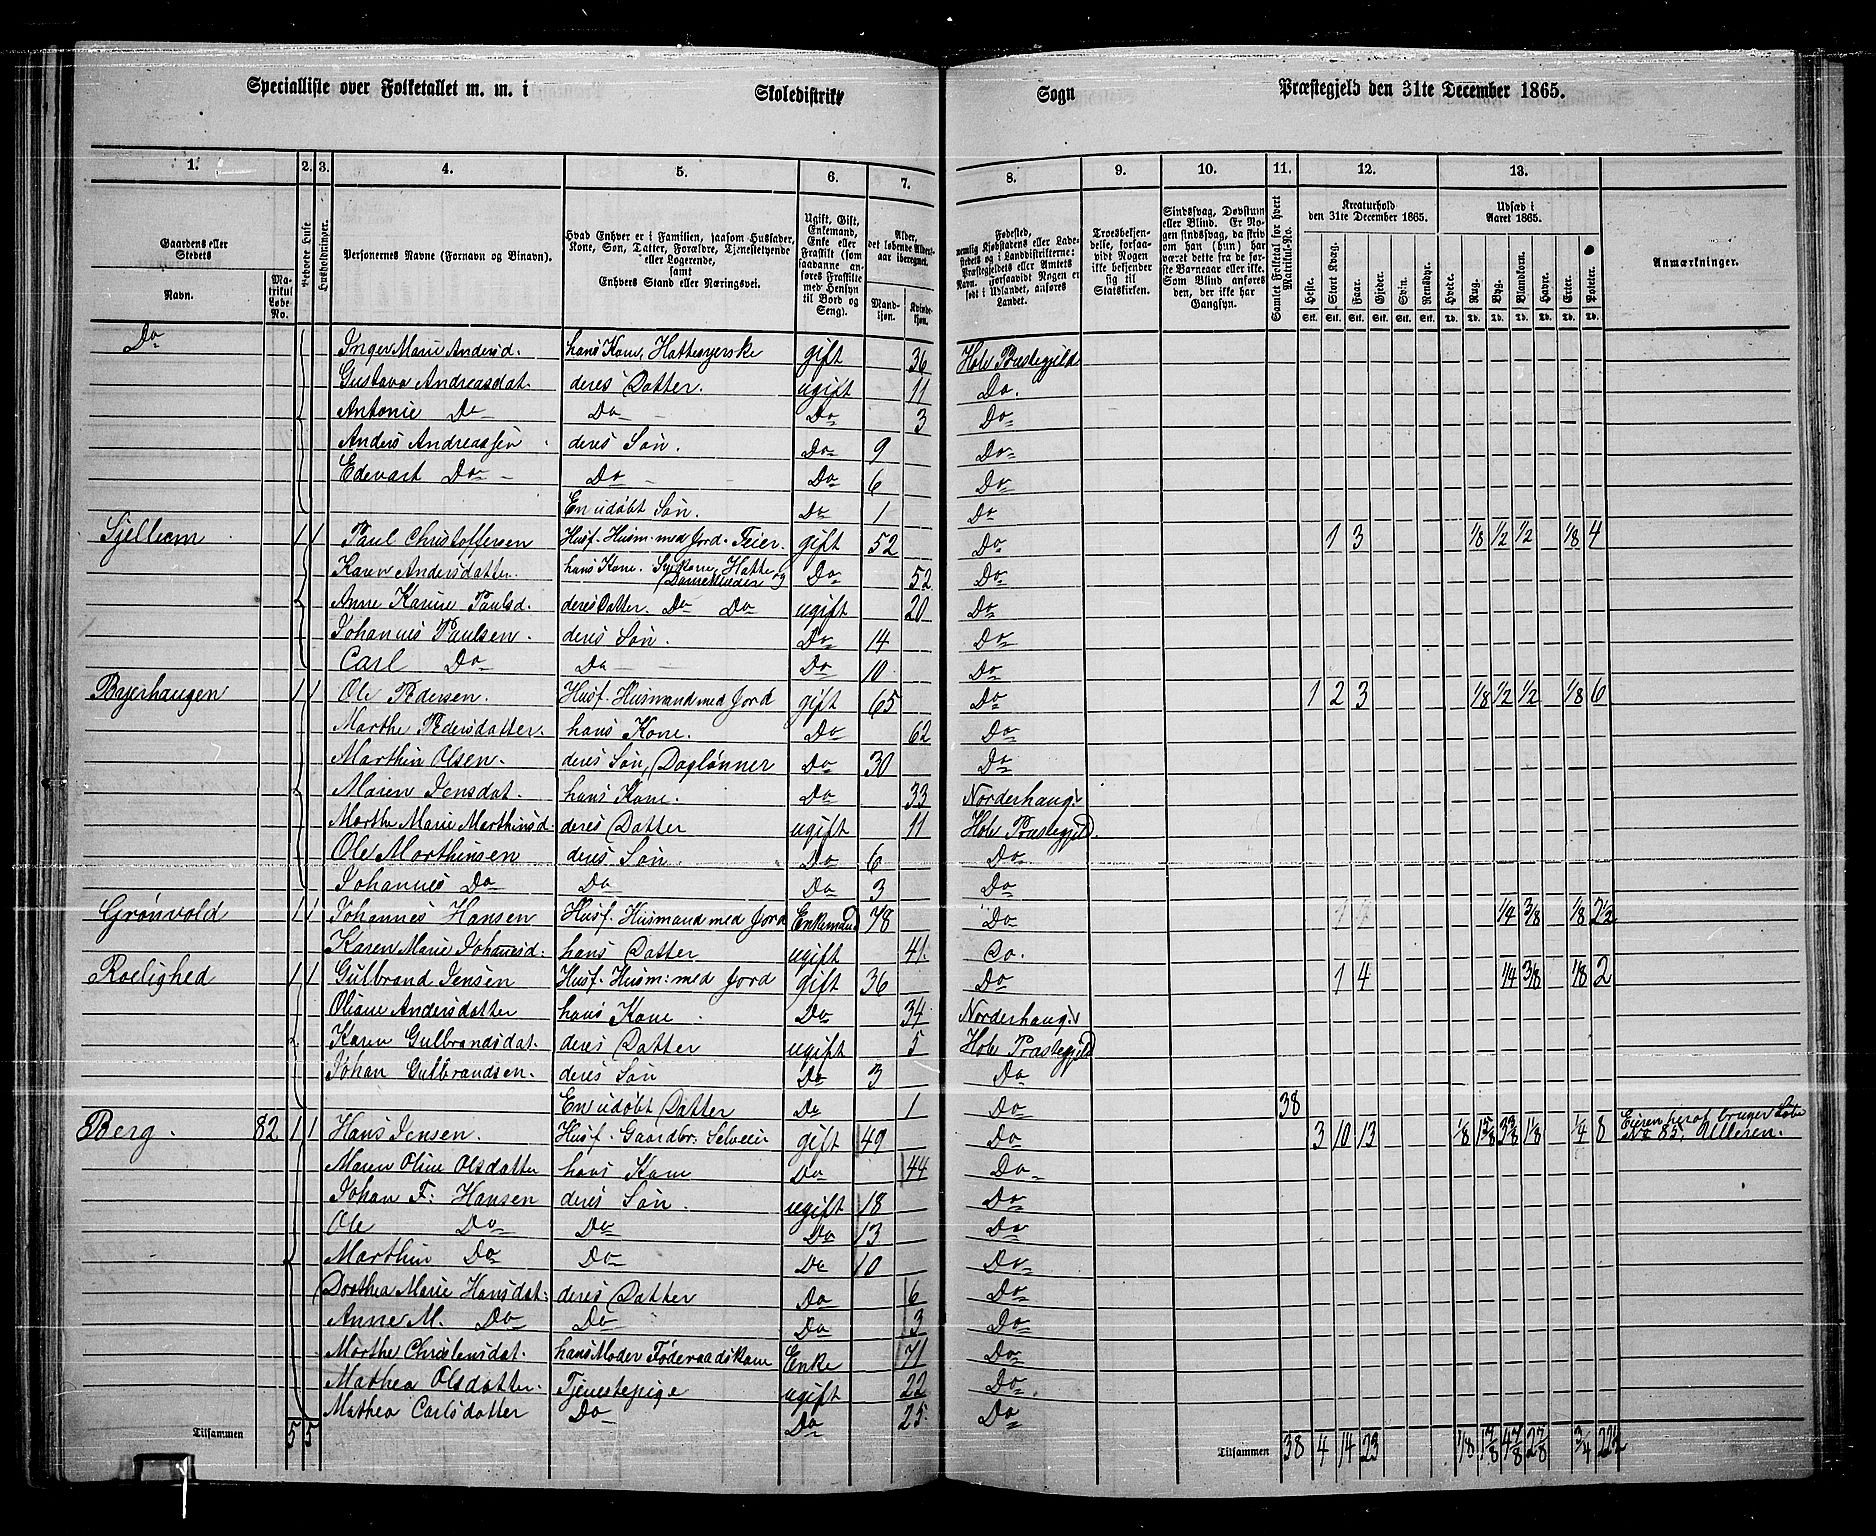 Specialliste over Folketallet m. m. i Skoledistrikt Sogn Præstegjeld den 31te December 1865.
1. 2. 3. 4. 5. 6. 7. 8. 9. 10. 11. 12. 13.
Gaardens eller Stedets Navn. Matrikul Løbe-No. Beboede Huse Husholdninger. Personernes Navne (Fornavn og Binavn). Hvad Enhver er i Familien, saasom Husfader, Kone, Søn, Datter, Forældre, Tjenestetyende eller Logerende, samt Enhvers Stand eller Næringsvei. Ugift, Gift, Enkemand, Enke eller Fraskilt (som saadanne anføres Fraskilte med Hensyn til Bord og Seng). Alder, det løbende Alders-aar iberegnet. Mandkjøn. Kvindekjøn.
Fødested, nemlig Kjøbstadens eller Ladestedets og i Landdistrikterne: Præstegjeldets eller Amtets Navn. Forsaavidt Nogen er født i Udlandet, anføres Landet. Troesbekjendelse, forsaavidt Nogen ikke bekjender sig til Statskirken. Sindssvag, Døvstum eller Blind. Er Nogen sindssvag, da skriv om han (hun) har været dette fra de første Barneaar eller ikke. Som Blind anføres den, der ikke har Gangsyn. Samlet Folketal for hvert Matrikul-No. Kreaturhold den 31te December 1865. Heste. Stort Kvæg. Faar. Gjeder. Svin. Rensdyr. Udsæd i Aaret 1865. Hvede. Rug. Byg. Blandkorn. Havre. Erter. Poteter. Anmærkninger.
Do Inger Marie Andersd. hans Kone, Hattesyerske gift 36 Hole Præstegjeld
Gustava Andreasdat. deres Datter. ugift 11 Do.
Antonie Do Do Do 3 Do
Anders Andreassen deres Søn. Do 9 Do
Edevart Do Do Do 6 Do
En udøbt Søn. Do 1 Do
Sjellum 1 1 Paul Christoffersen Husf. Husm. med Jord. Feier. gift 52 Do 1 3 1/8 1/2 1/2 1/8 4
Karen Andersdatter. hans Kone. Hatte og Do 52 Do
Anne Karine Paulsd. deres Datter. Do Do ugift 20 Do
Johannes Paulsen. deres Søn. Do 14 Do
Carl Do Do Do 10 Do
Byerhaugen 1 1 Ole Pedersen. Husf. Husmand med Jord gift 65 Do 1 2 3 1/8 1/2 1/2 1/8 6
Marthe Pedersdatter. hans Kone. Do 62 Do
Marthin Olsen. deres Søn, Daglønner Do 30 Do
Maren Jensdat. hans Kone. Do 33 Norderhaug
Marthe Marie Marthinsd. deres Datter ugift 11 Hole Præstegjeld.
Ole Marthinsen deres Søn. Do 6 Do
Johannes Do Do Do 3 Do
Grønvold 1 1 Johannes Hansen Husf. Husmand med Jord Enkemand 78 Do 1/4 3/8 1/8 2 1/2
Karen Marie Johanesd. hans Datter ugift 41. Do.
Roelighed 1 1 Gulbrand Jensen Husf. Husm: med Jord gift 36 Do 1 4 1/4 3/8 1/8 2
Oliane Andersdatter hans Kone Do 34 Norderhaug
Karen Gulbrandsdat. deres Datter ugift 5 Hole Præstegjeld
Johan Gulbrandsen. deres Søn Do 3 Do
En udøbt Datter Do 1 Do 38
Berg. 82 1 1 Hans Jensen. Husf. Gaardbr. Selveier gift 49 Do 3 10 13 1/8 1/8 1/4 8 Eieren heraf bruger Løbe No 85, Ulleren.
Maren Oline Olsdatter hans Kone Do 44 Do
Johan F: Hansen deres Søn. ugift 18 Do
Ole Do Do Do 13 Do
Marthin Do Do Do 10 Do
Dorthea Marie Hansdat. deres Datter Do 6 Do
Anne M. Do Do Do 3 Do
Marthe Christensdat. hans Moder Føderaadskone Enke 71 Do
Mathea Olsdatter. Tjenestepige ugift 22 Do
Mathea Carlsdatter Do Do 25 Do
Tilsammen 5 5 Tilsammen 38 4 14 23 1/8 1 7/8 4 7/8 2 7/8 3/4 22 1/2